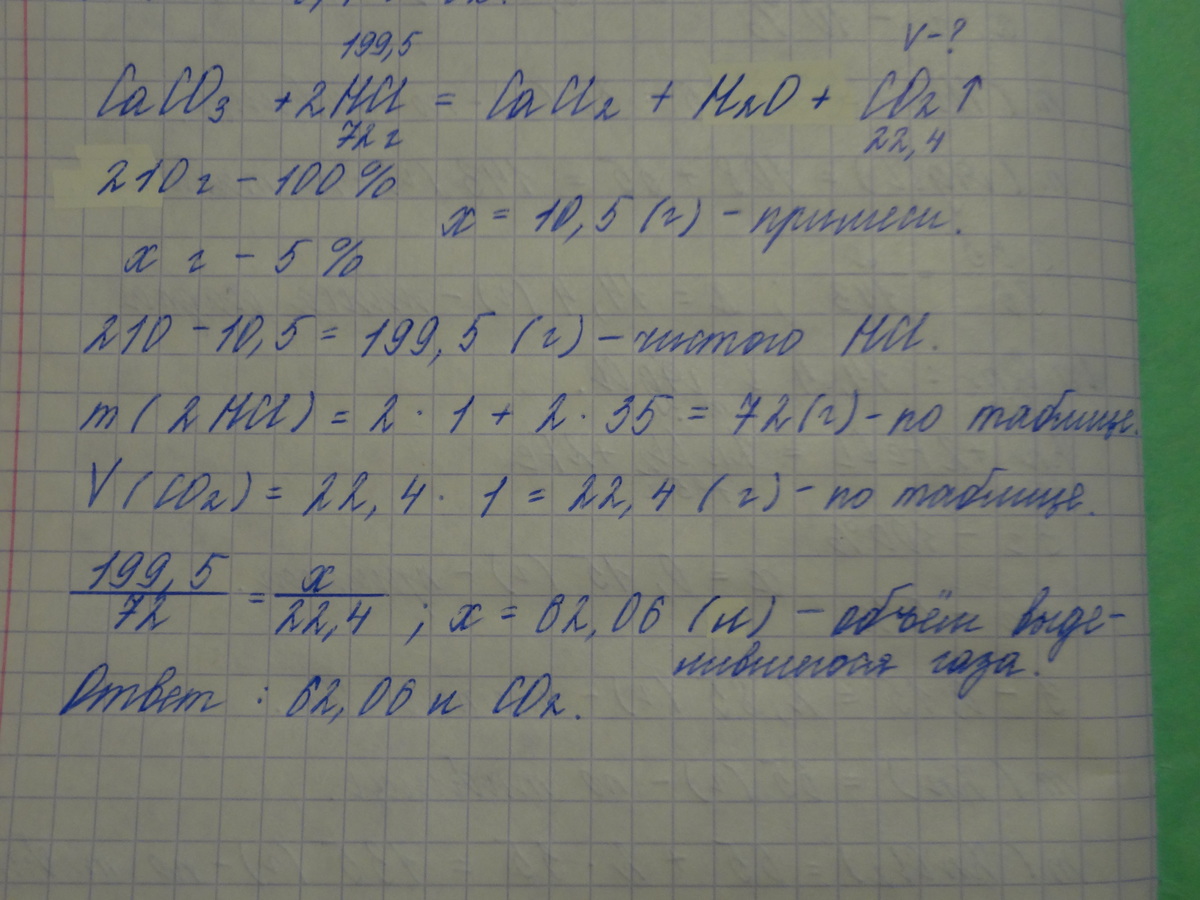 199,5 V-?
CaCO3 + 2HCl = CaCl2 + H2O + CO2↑
72 г 22,4
210 г - 100 %
x = 10,5 (г) - примеси.
x г - 5 %
210 - 10,5 = 199,5 (г) - чистого HCl.
m (2HCl) = 2 · 1 + 2 · 35 = 72 (г) - по таблице.
V (CO2) = 22,4 · 1 = 22,4 (г) - по таблице.
199,5/72 = x/22,4 ; x = 62,06 (л) - объём выде-
лившегося газа.
Ответ : 62,06 л CO2.